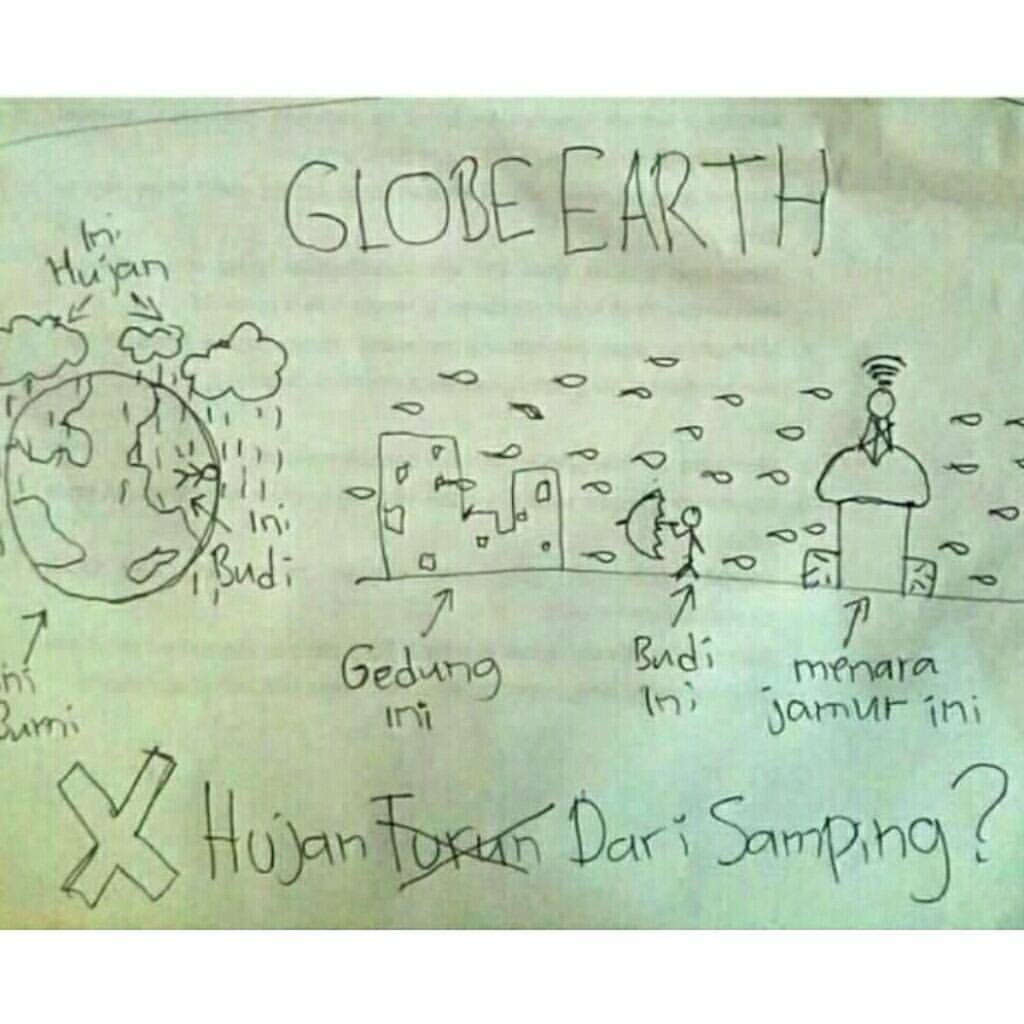 GLOBE EARTH
Ini
Hujan
Ini
Budi
ini
Bumi
Gedung
ini
Budi
Ini
menara
jamur ini
X Hujan Turun Dari Samping?